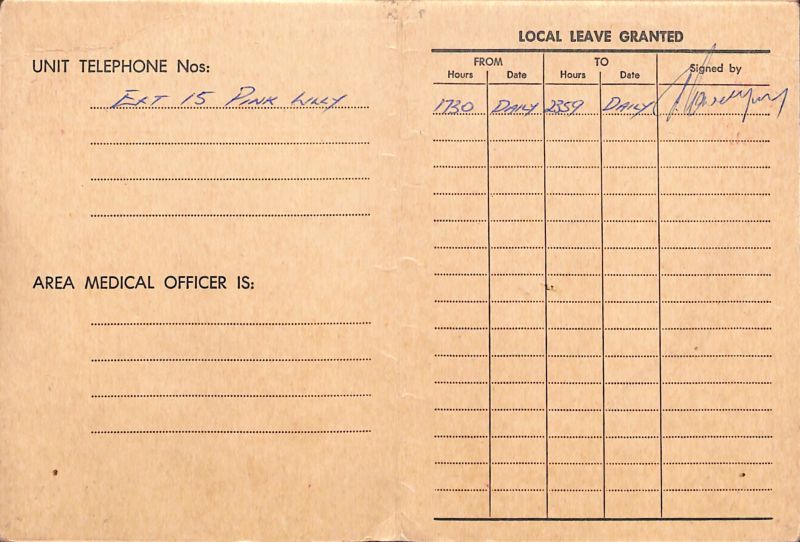 UNIT TELEPHONE Nos:
EXT 15 PINK LILLY
AREA MEDICAL OFFICER IS:
LOCAL LEAVE GRANTED
FROM TO Signed by
Hours Date Hours Date
1730 DAILY 2359 DAILY